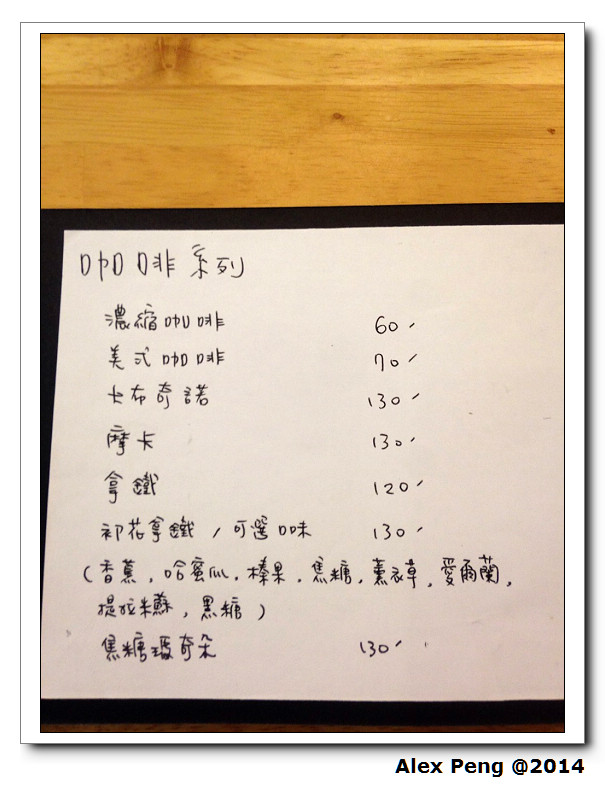 咖啡系列
濃縮咖啡 60
美式咖啡 70
卡布奇諾 130
摩卡 130
拿鐵 120
初花拿鐵 / 可選口味 130
(香蕉, 哈蜜瓜, 榛果, 焦糖, 薰衣草, 愛爾蘭,
提拉米蘇, 黑糖)
焦糖瑪奇朵 130
Alex Peng @2014